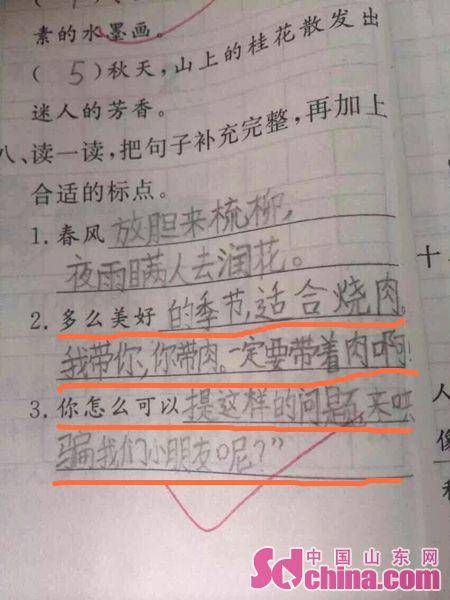 素的水墨画。
(5)秋天,山上的桂花散发出
迷人的芳香。
八、读一读,把句子补充完整,再加上
合适的标点。
1.春风放胆来梳柳,
夜雨瞒人去润花。
2.多么美好的季节,适合烧肉。
我带你,你带肉。一定要带着肉啊!
3.你怎么可以提这样的问题,来
骗我们小朋友呢?”
十
人
像
中国山东网
Sdchina.com